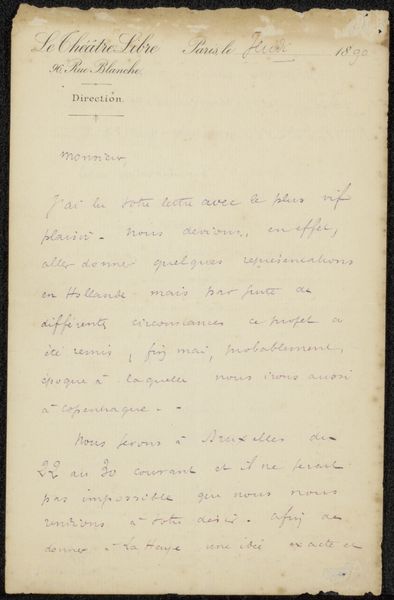 Le Théâtre Libre
96 Rue Blanche.
Direction.
Paris, le Jeudi 1890
Monsieur
J'ai lu votre lettre avec le plus vif
plaisir. Nous devions, en effet,
aller donner quelques représentations
en Hollande mais par suite de
différentes circonstances ce projet a
été remis, fin mai, probablement,
époque à laquelle nous irons aussi
à Copenhague. -
Nous serons à Bruxelles du
22 au 30 courant et il ne serait
pas impossible que nous nous
rendions à votre désir. afin de
donner à La Haye une idée exacte et